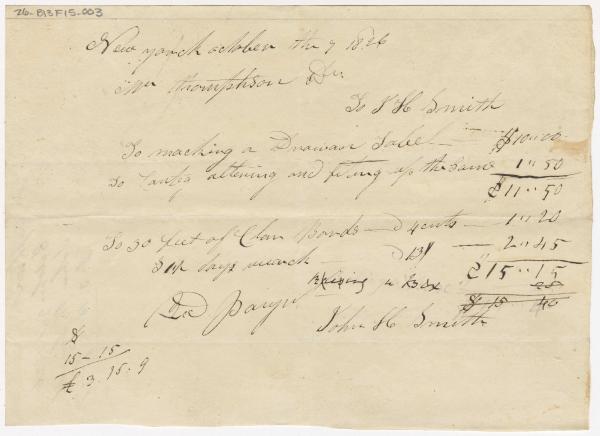 26-B13F15.003
New yorck october the 9 1826
Mr thomphson Dr
To J H Smith
To macking a Drawair Tabel — $10"00
To altering and fiting up the Same 1"50
$11"50
To 30 feet of Clan Boards — D 4 cents — 1"20
days wearck — D 13/ — 2"45
$15"15
in
$ 15 40
Rd Payt
John H Smith
$
15-15
£ 3.15.9